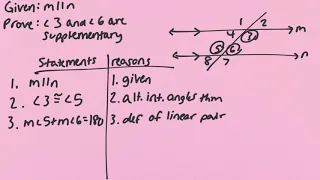 Given: m||n
Prove: <3 and <6 are
supplementary
Statements reasons
1. m||n 1. given
2. <3 ≅ <5 2. alt. int. angles thm
3. m<5+m<6=180 3. def of linear pair
1 2
4 3 m
5 6 n
8 7